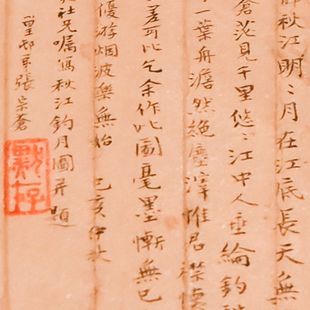 秋江明〻月在江底長天無
蒼茫見千里悠〻江中人垂綸釣
一葉舟澹然絶塵滓惟君襟懷
差可比乞余作此圖毫墨慚無已
優游烟波樂無始 己亥仲秋
社兄嘱爲秋江釣月圖并題
篁邨弟張宗蒼
默存